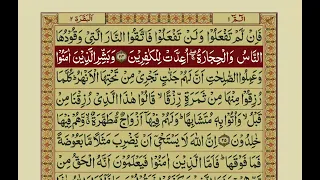 الٓمّٓ ١ البقرة ٢
فَاِنْ لَّمْ تَفْعَلُوْا وَلَنْ تَفْعَلُوْا فَاتَّقُوا النَّارَ الَّتِیْ وَقُوْدُهَا
النَّاسُ وَالْحِجَارَةُ ۖۚ اُعِدَّتْ لِلْكٰفِرِیْنَ ﴿۲۴﴾ وَبَشِّرِ الَّذِیْنَ اٰمَنُوْا
وَعَمِلُوا الصّٰلِحٰتِ اَنَّ لَهُمْ جَنّٰتٍ تَجْرِیْ مِنْ تَحْتِهَا الْاَنْهٰرُ ؕ كُلَّمَا
رُزِقُوْا مِنْهَا مِنْ ثَمَرَةٍ رِّزْقًا ۙ قَالُوْا هٰذَا الَّذِیْ رُزِقْنَا مِنْ
قَبْلُ ۙ وَاُتُوْا بِهٖ مُتَشَابِهًا ؕ وَلَهُمْ فِیْهَاۤ اَزْوَاجٌ مُّطَهَّرَةٌ ۙۗ وَّهُمْ فِیْهَا
خٰلِدُوْنَ ﴿۲۵﴾ اِنَّ اللّٰهَ لَا یَسْتَحْیٖۤ اَنْ یَّضْرِبَ مَثَلًا مَّا بَعُوْضَةً
فَمَا فَوْقَهَا ؕ فَاَمَّا الَّذِیْنَ اٰمَنُوْا فَیَعْلَمُوْنَ اَنَّهُ الْحَقُّ مِنْ